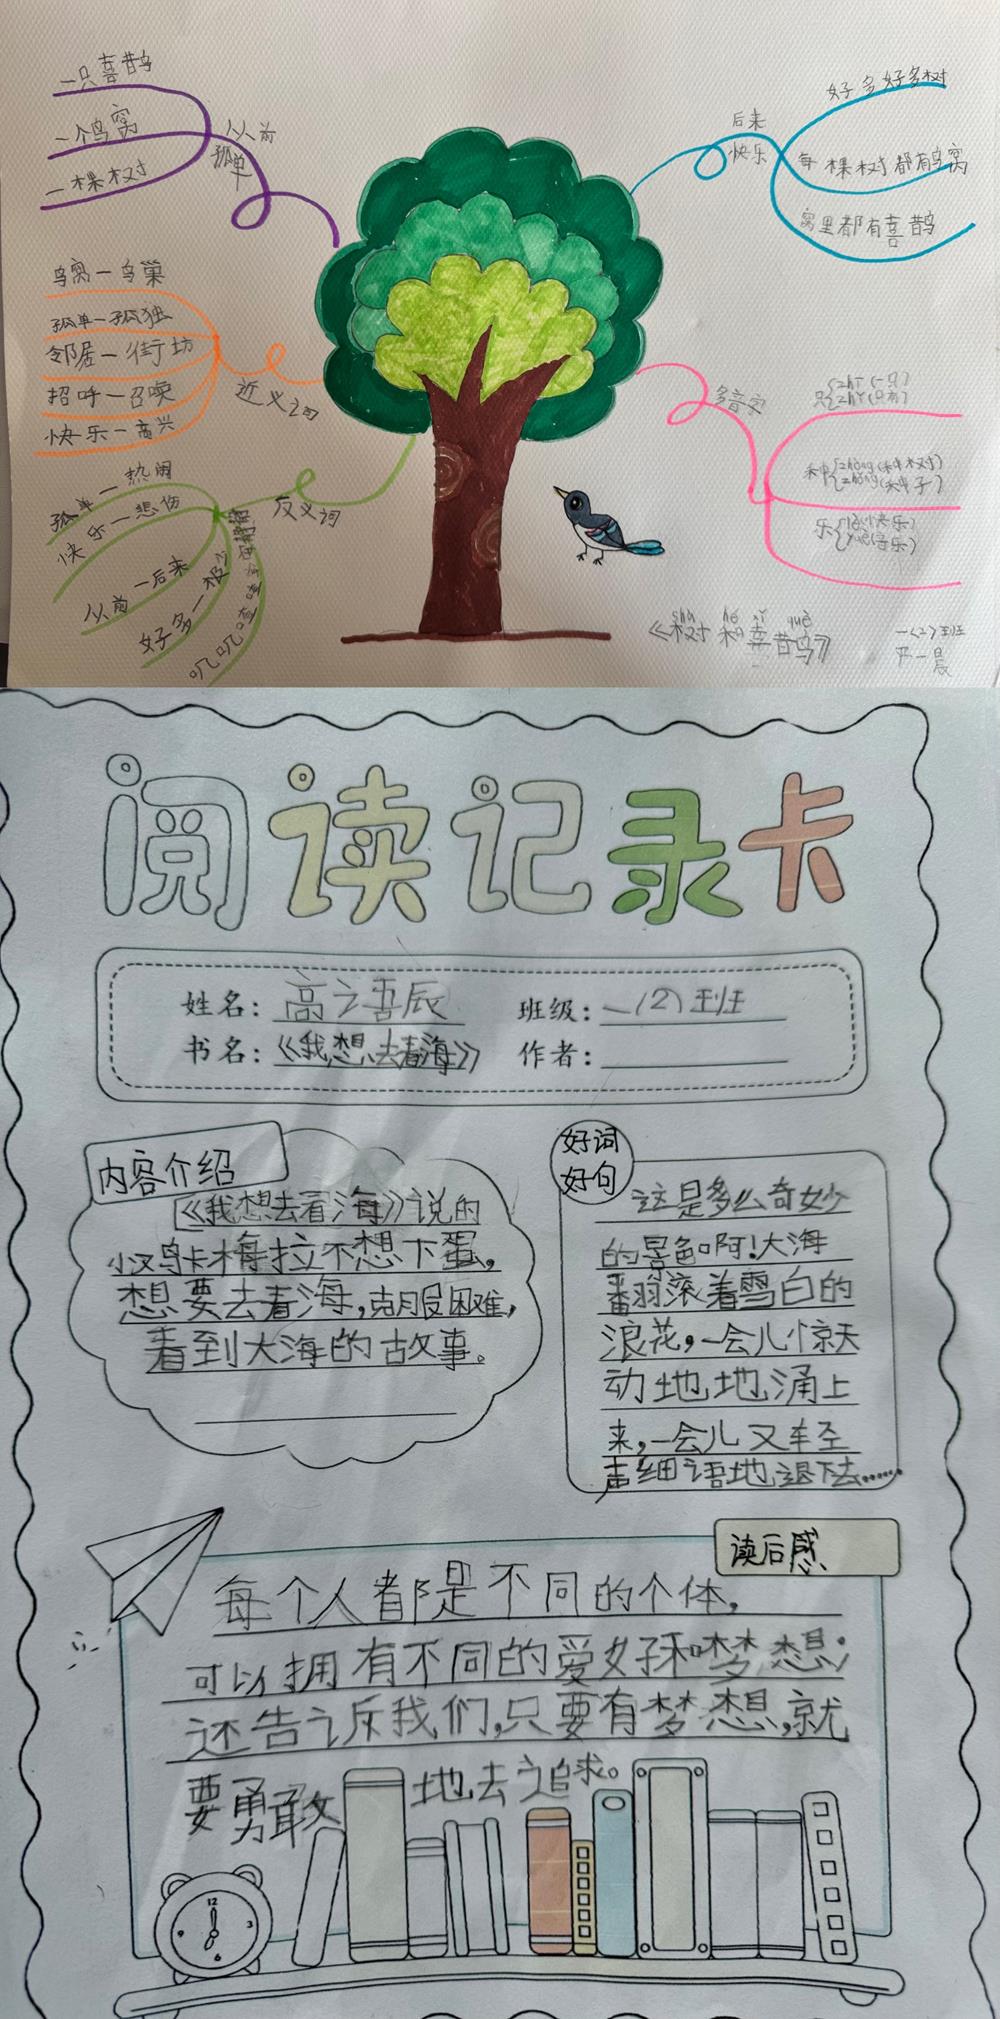 一只喜鹊
一个鸟窝
一棵树
以前
孤单
后来
快乐
好多好多树
每棵树都有鸟窝
窝里都有喜鹊
鸟窝一鸟巢
孤单一孤独
邻居一街坊
招呼一召唤
快乐一高兴
近义词
孤单一热闹
快乐一悲伤
以前一后来
好多一极少
叽叽喳喳
反义词
多音字
只{zhī(一只)
zhǐ(只有)
种{zhòng(种树)
zhǒng(种子)
乐{lè(快乐)
yuè(音乐)
shù hé xǐ què
《树和喜鹊》
一(2)班
阅读记录卡
姓名：高之語辰 班级：一(2)班
书名：《我想去看海》 作者：
内容介绍
《我想去看海》说的
小鸡卡梅拉不想下蛋，
想要去看海，克服困难，
看到大海的故事。
好词
好句
这是多么奇妙
的景色啊！大海
翻滚着雪白的
浪花，一会儿惊天
动地地涌上
来，一会儿又轻
声细语地退下去……
读后感
每个人都是不同的个体，
可以拥有不同的爱好和梦想；
还告诉我们，只要有梦想，就
要勇敢地去追求。
12
3
6
9